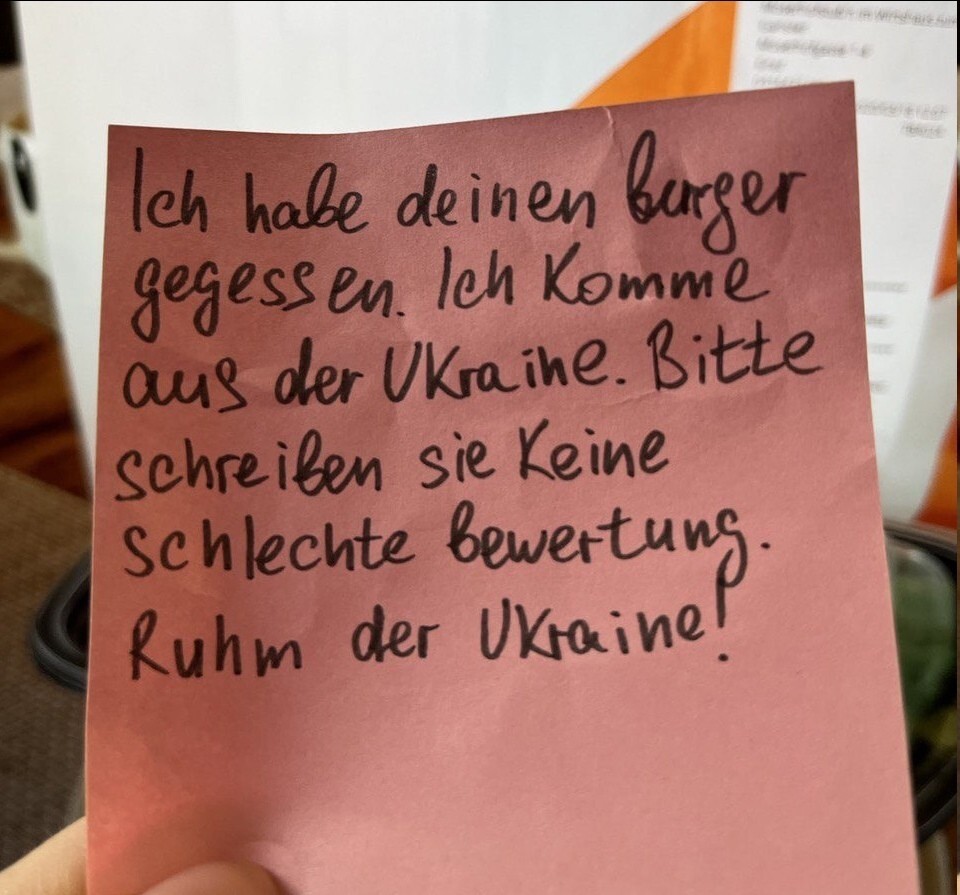 Ich habe deinen burger
gegessen. Ich Komme
aus der Ukraine. Bitte
schreiben sie Keine
schlechte bewertung.
Ruhm der Ukraine!